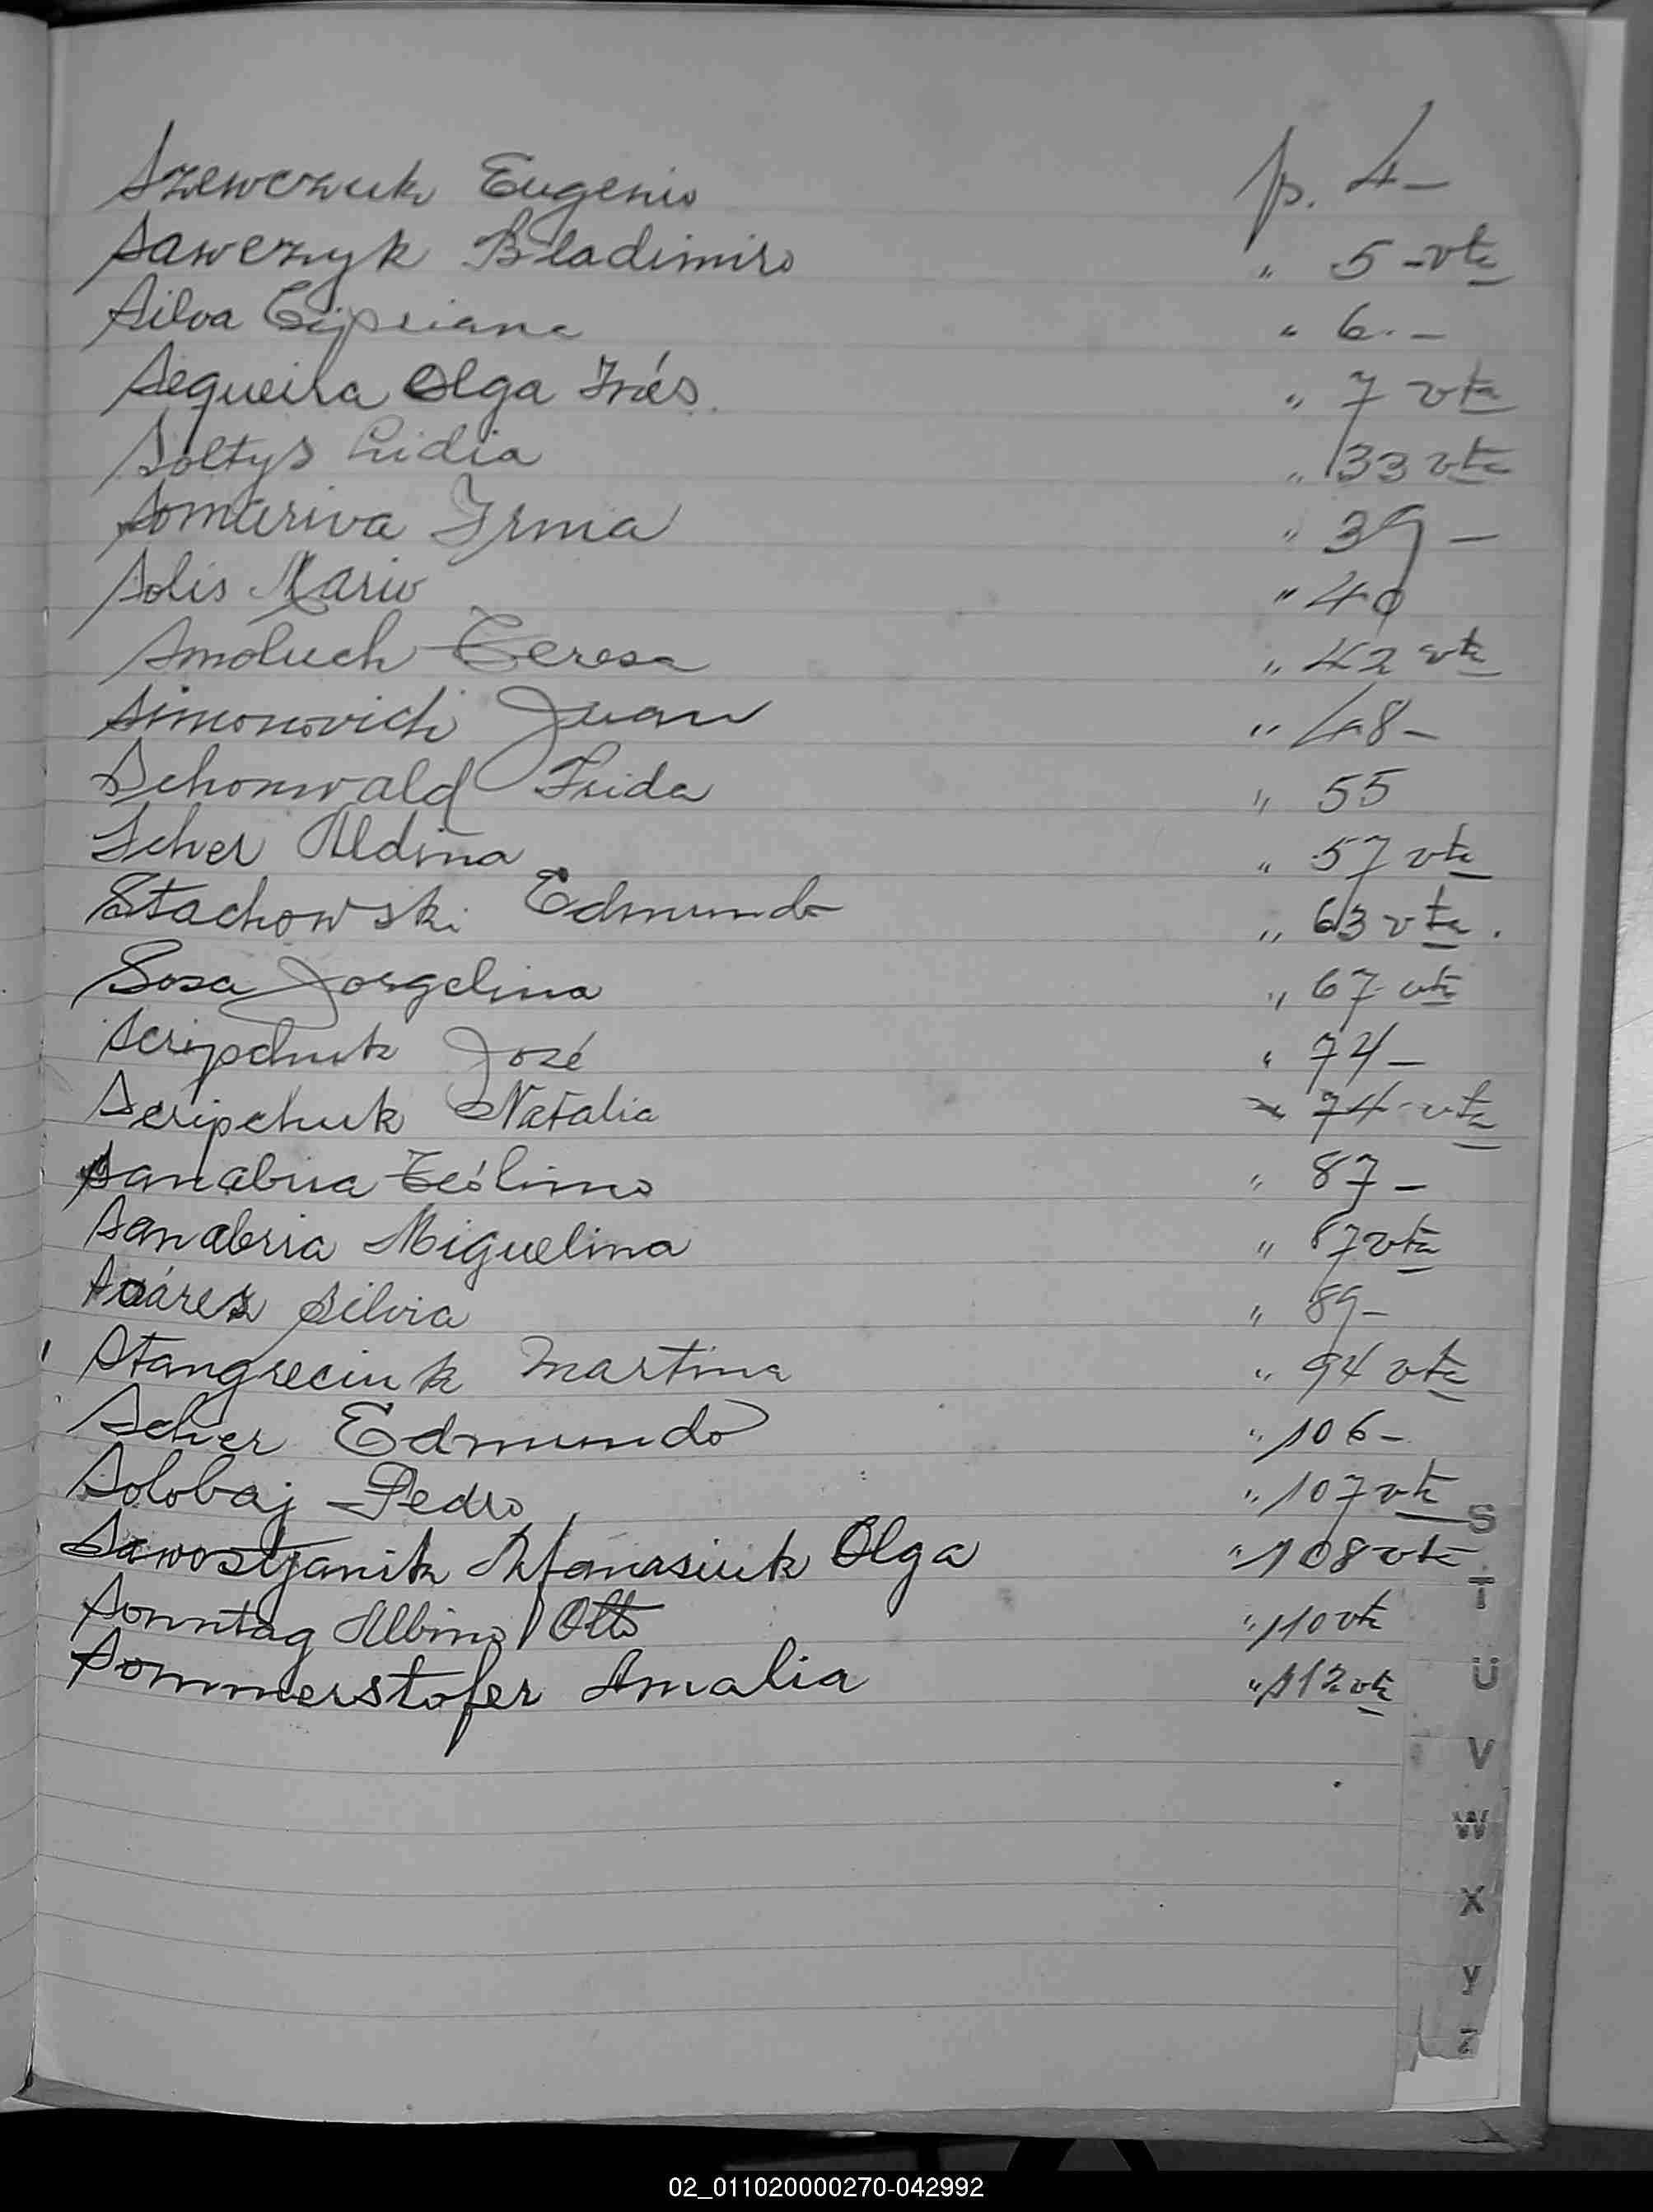 Szewczuk Eugenio p. 4-
Sawczyk Bladimiro " 5-vta
Silva Cipriana " 6.-
Sequeira Olga Inés. " 7 vta
Soltys Lidia " 33 vta
Somariva Irma " 39 -
Solis Mario " 40
Smoluch Teresa " 42 vta
Simonovich Juan " 48-
Schonwald Frida " 55
Scher Aldina " 57 vta
Stachowski Edmundo " 63 vta.
Sosa Jorgelina " 67 vta
Scripchuk José " 74-
Scripchuk Natalia " 74-vta
Sanabria Teólimo " 87-
Sanabria Miguelina " 87 vta
Suárez Silvia " 89-
Stangreciuk Martina " 94 vta
Scher Edmundo " 106-
Solobaj Pedro " 107 vta
Sawostjanik Afanasiuk Olga " 108 vta
Sonntag Albino Otto " 110 vta
Sommerstofer Amalia " 112 vta
S
T
Ü
V
W
X
Y
Z
02_011020000270-042992